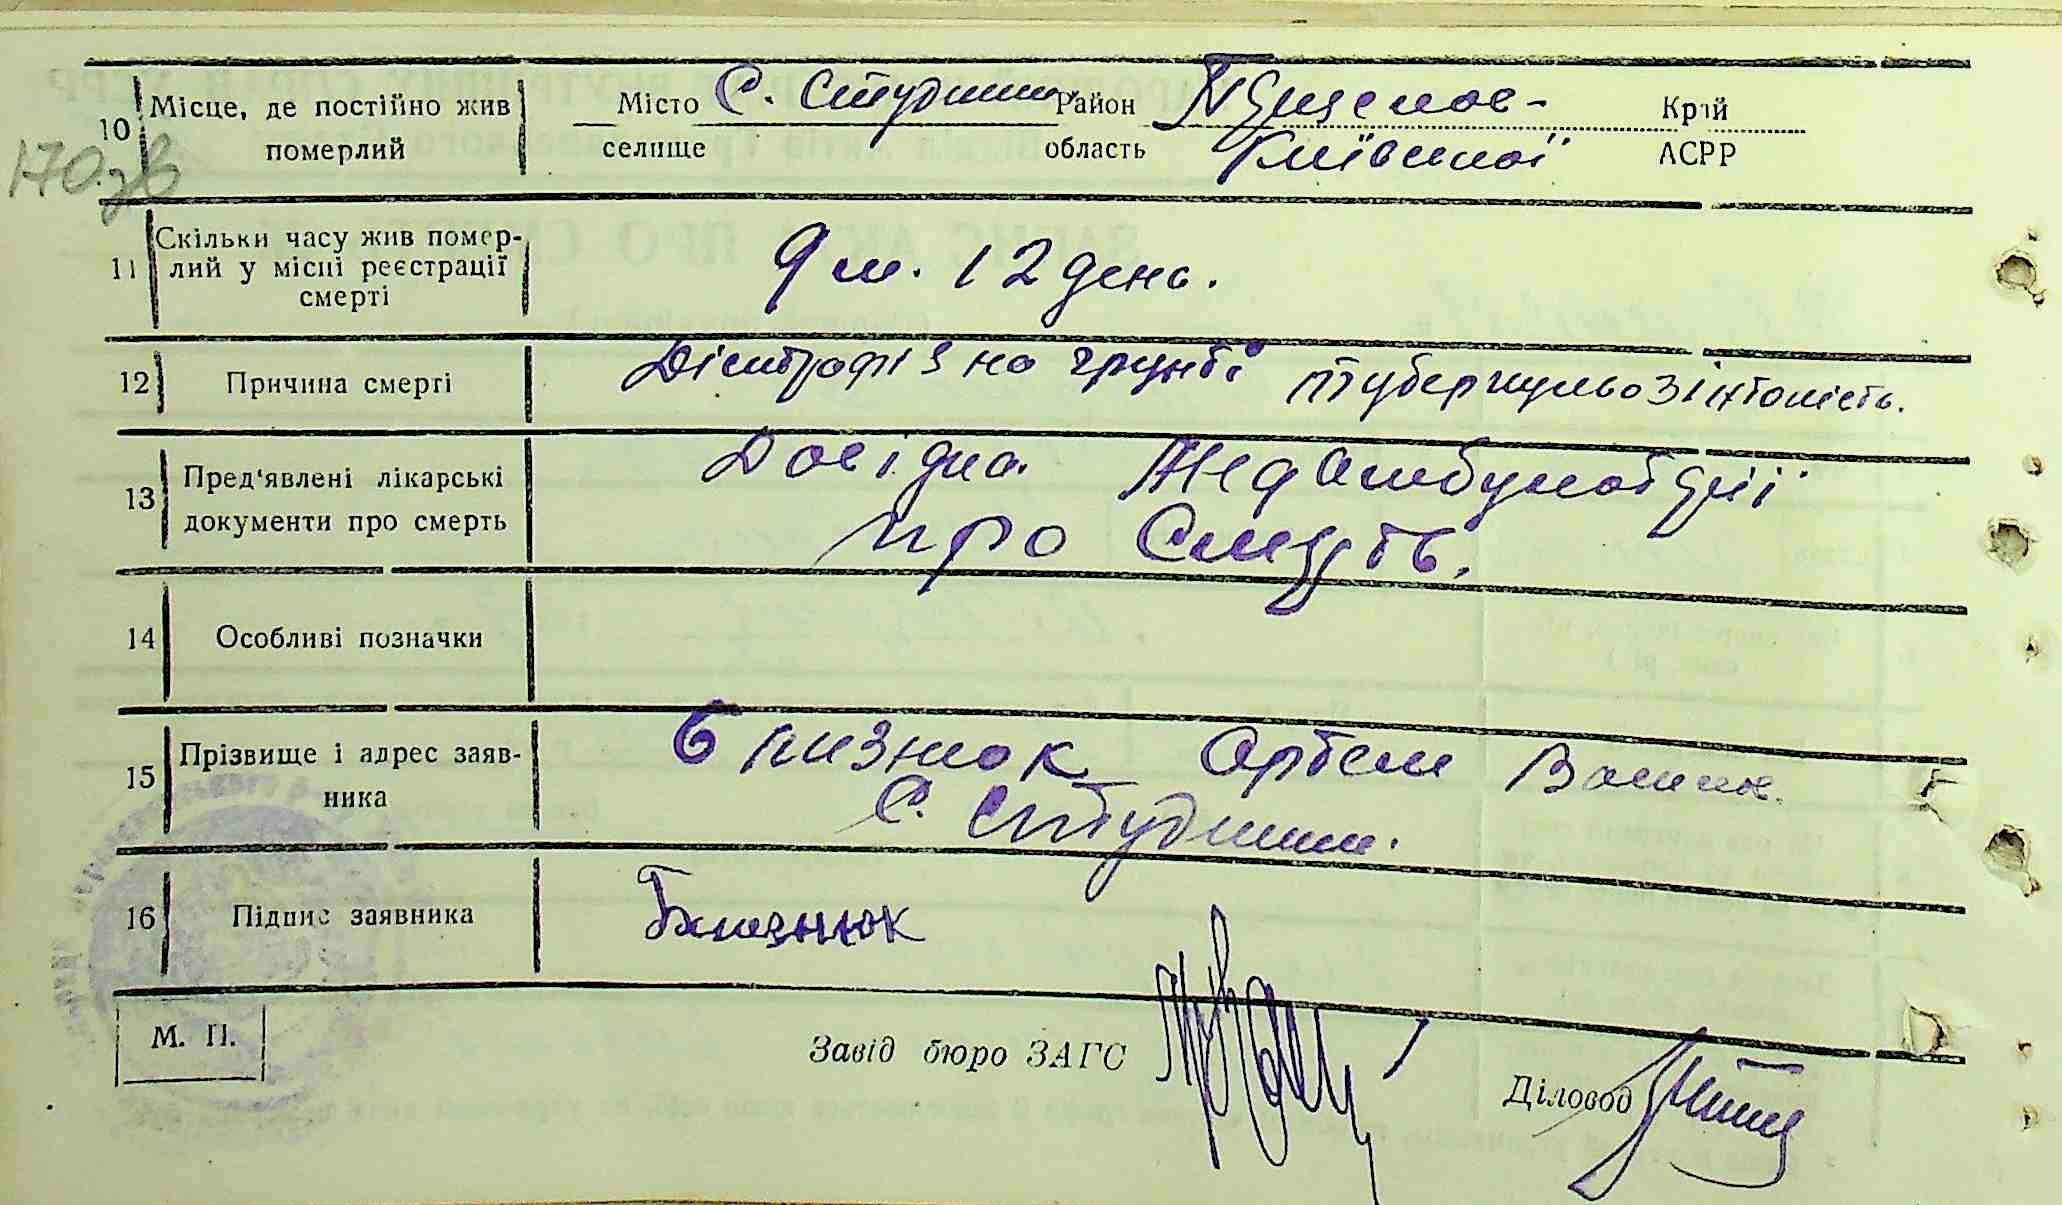 10 Місце, де постійно жив померлий
Місто С. Студник Район
селище область Київської Край АСРР
170 зв
11 Скільки часу жив помер-
лий у місці реєстрації
смерті
9 м. 12 день.
12 Причина смерті
Дістрофіз на грунті туберкульозінтоксість.
13 Пред'явлені лікарські
документи про смерть
Довідка Медамбулаторії
про Смерть.
14 Особливі позначки
15 Прізвище і адрес заяв-
ника
Близнюк Артем
С. Студник.
16 Підпис заявника
Близнюк
М. П.
Завід бюро ЗАГС
Діловод